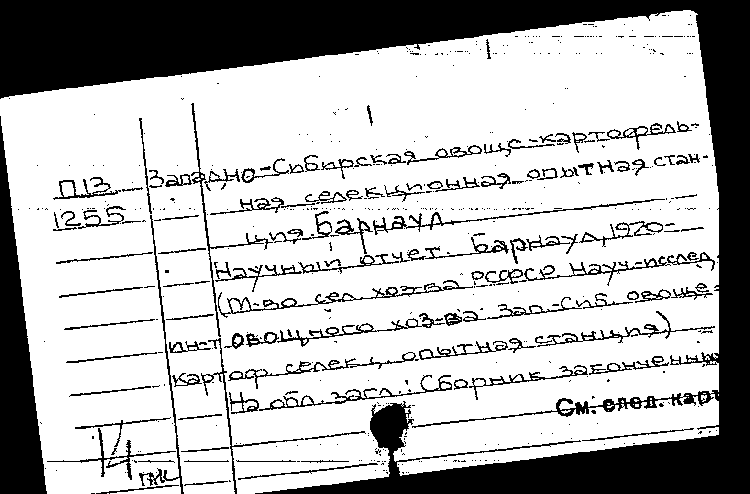 П13 Западно-Сибирская овоще-картофель-
1255 ная селекционная опытная стан-
ция. Барнаул.
Научный отчет. Барнаул, 1970-
(М-во сел. хоз-ва РСФСР. Науч.-исслед.
ин-т овощного хоз-ва. Зап.-Сиб. овоще-
картоф. селекц. опытная станция)
На обл. загл.: Сборник законченных
См. след. карт
14 ГАК